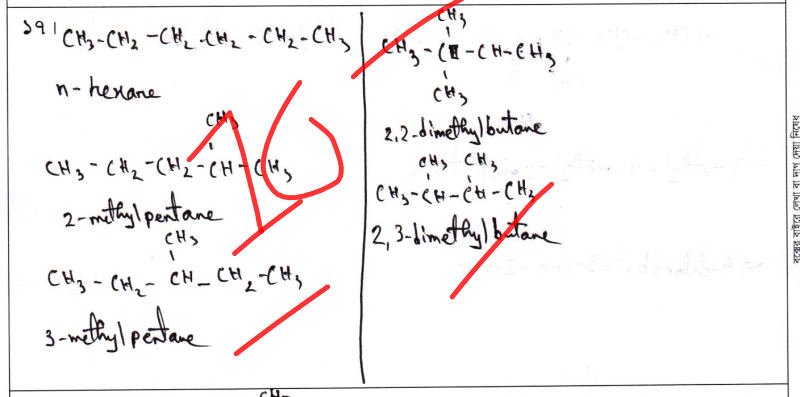 ১৭।
CH3-CH2-CH2-CH2-CH2-CH3
n-hexane
CH3
CH3-CH2-CH2-CH-CH3
2-methylpentane
CH3
CH3-CH2-CH-CH2-CH3
3-methylpentane
CH3
CH3-C-CH-CH3
CH3
2,2-dimethylbutane
CH3 CH3
CH3-CH-CH-CH3
2,3-dimethylbutane
10
বক্সের বাইরে লেখা বা দাগ দেয়া নিষেধ